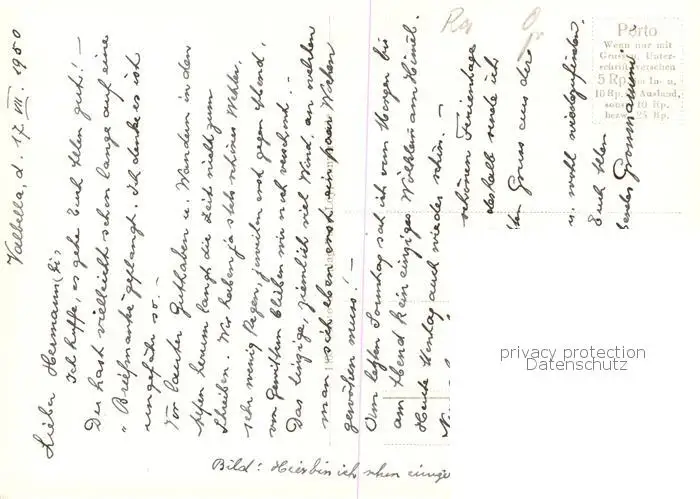 Valbella, d. 17. VII. 1950
Lieber Hermann,
Ich hoffe, es gehe Euch allen gut! –
Du hast vielleicht schon lange auf eine
"Briefmarke" geplangt. Ich denke es ist
ungefähr so. –
Vor lauter Guthaben u. Wandern in den
kaum langt die Zeit nicht zum
Schreiben. Wir haben ja stets schönes Wetter,
sehr wenig Regen, jeweilen erst gegen Abend,
von Gewittern blieben wir noch verschont. –
Das einzige, ziemlich viel Wind, an welchen
man sich eben erst ein paar Wochen
gewöhnen muss! –
Am letzten Sonntag sah ich vom Morgen bis
am Abend kein einziges Wölklein am Himmel.
Heute Montag auch wieder schön. –
schönen Ferientage
deshalb sende ich
Gruss aus der
u. wohl
Euch allen
Porto
Wenn nur mit
Gruss u. Unter-
schrift versehen
5 Rp. im In- u.
10 Rp. Ausland,
sonst 10 Rp.
bezw. 25 Rp.
Bild: Hier bin ich schon
privacy protection
Datenschutz